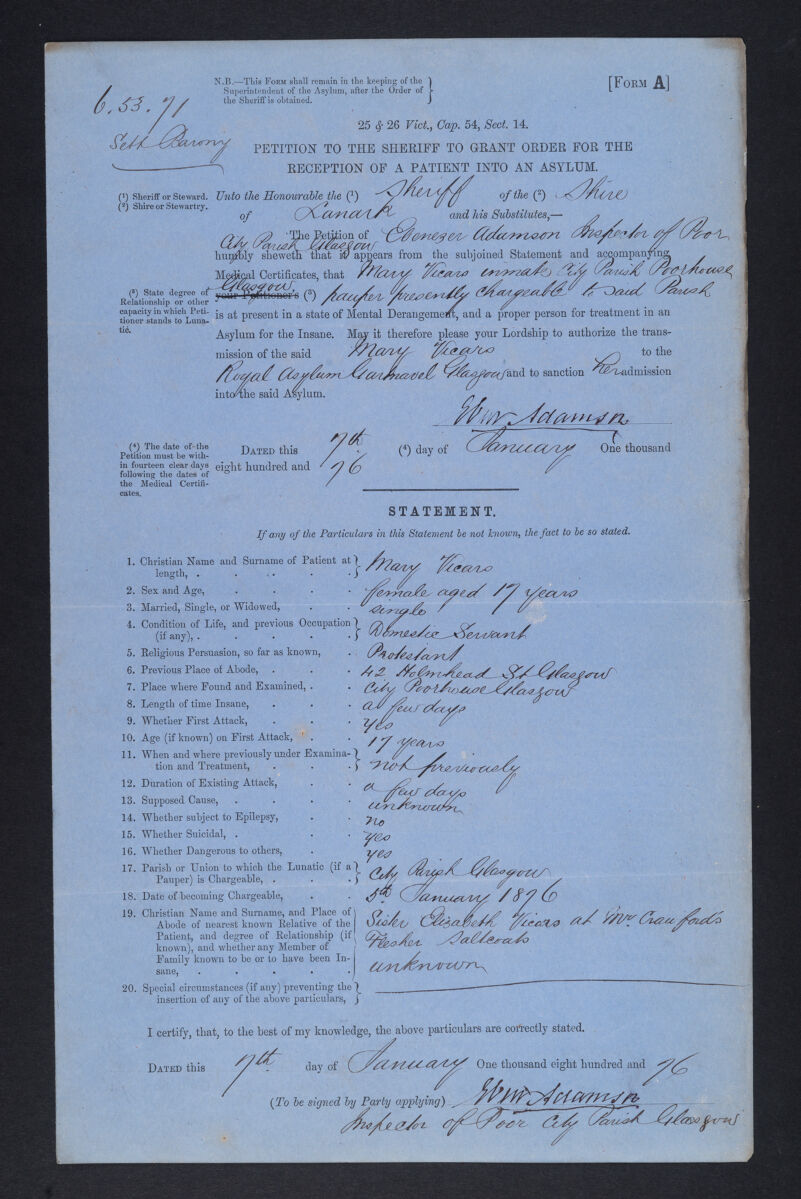 N.B.—This Form shall remain in the keeping of the
Superintendent of the Asylum, after the Order of
the Sheriff is obtained.
[Form A]
6.53.71
Sett Barony
25 & 26 Vict., Cap. 54, Sect. 14.
PETITION TO THE SHERIFF TO GRANT ORDER FOR THE
RECEPTION OF A PATIENT INTO AN ASYLUM.
(1) Sheriff or Steward.
(2) Shire or Stewartry.
Unto the Honourable the (1) Sheriff of the (2) Shire
of Lanark and his Substitutes,—
The Petition of Ebenezer Adamson Inspector of Poor
City Parish Glasgow
humbly sheweth that it appears from the subjoined Statement and accompanying
Medical Certificates, that Mary Vicars inmate City Parish Poorhouse
Glasgow,
(3) State degree of
Relationship or other
capacity in which Peti-
tioner stands to Luna-
tic.
your Petitioner's (3) pauper presently chargeable to said Parish
is at present in a state of Mental Derangement, and a proper person for treatment in an
Asylum for the Insane. May it therefore please your Lordship to authorize the trans-
mission of the said Mary Vicars to the
Royal Asylum Garnavel Glasgow and to sanction her admission
into the said Asylum.
Ebnr Adamson
(4) The date of the
Petition must be with-
in fourteen clear days
following the dates of
the Medical Certifi-
cates.
Dated this 7th (4) day of January One thousand
eight hundred and 76
STATEMENT.
If any of the Particulars in this Statement be not known, the fact to be so stated.
1. Christian Name and Surname of Patient at
length, . . . . . . Mary Vicars
2. Sex and Age, . . . . female aged 17 years
3. Married, Single, or Widowed, . . single
4. Condition of Life, and previous Occupation
(if any), . . . . . . Domestic Servant
5. Religious Persuasion, so far as known, . Protestant
6. Previous Place of Abode, . . . 42 Holmhead St Glasgow
7. Place where Found and Examined, . . City Poorhouse Glasgow
8. Length of time Insane, . . . a few days
9. Whether First Attack, . . . yes
10. Age (if known) on First Attack, . . 17 years
11. When and where previously under Examina-
tion and Treatment, . . . . not previously
12. Duration of Existing Attack, . . a few days
13. Supposed Cause, . . . . unknown
14. Whether subject to Epilepsy, . . no
15. Whether Suicidal, . . . yes
16. Whether Dangerous to others, . . yes
17. Parish or Union to which the Lunatic (if a
Pauper) is Chargeable, . . . . City Parish Glasgow
18. Date of becoming Chargeable, . . 5th January 1876
19. Christian Name and Surname, and Place of
Abode of nearest known Relative of the
Patient, and degree of Relationship (if
known), and whether any Member of
Family known to be or to have been In-
sane, . . . . . .
Sister Elizabeth Vicars at Mr. Craufords
Flesher Saltcoats
unknown
20. Special circumstances (if any) preventing the
insertion of any of the above particulars,
I certify, that, to the best of my knowledge, the above particulars are correctly stated.
Dated this 7th day of January One thousand eight hundred and 76
(To be signed by Party applying) Ebnr Adamson
Inspector of Poor City Parish Glasgow